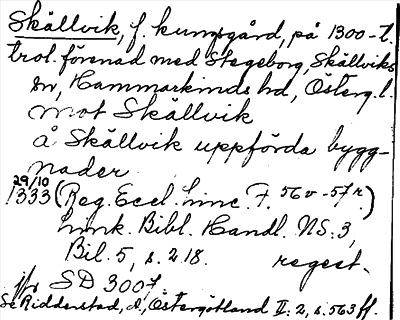 Skällvik, f. kungsgård, på 1300-t.
trol. förenad med Stegeborg, Skällviks
sn, Hammarkinds hd, Österg. l.
mot Skällvik
å Skällvik uppförda bygg-
nader
29/10
1333 (Reg. Eccl. Linc. F. 56v-57r.)
Link. Bibl. Handl. NS: 3,
Bil. 5, s. 218. regest.
jfr SD 3007.
Se Ridderstad, Östergötland II: 2, s. 563 ff.